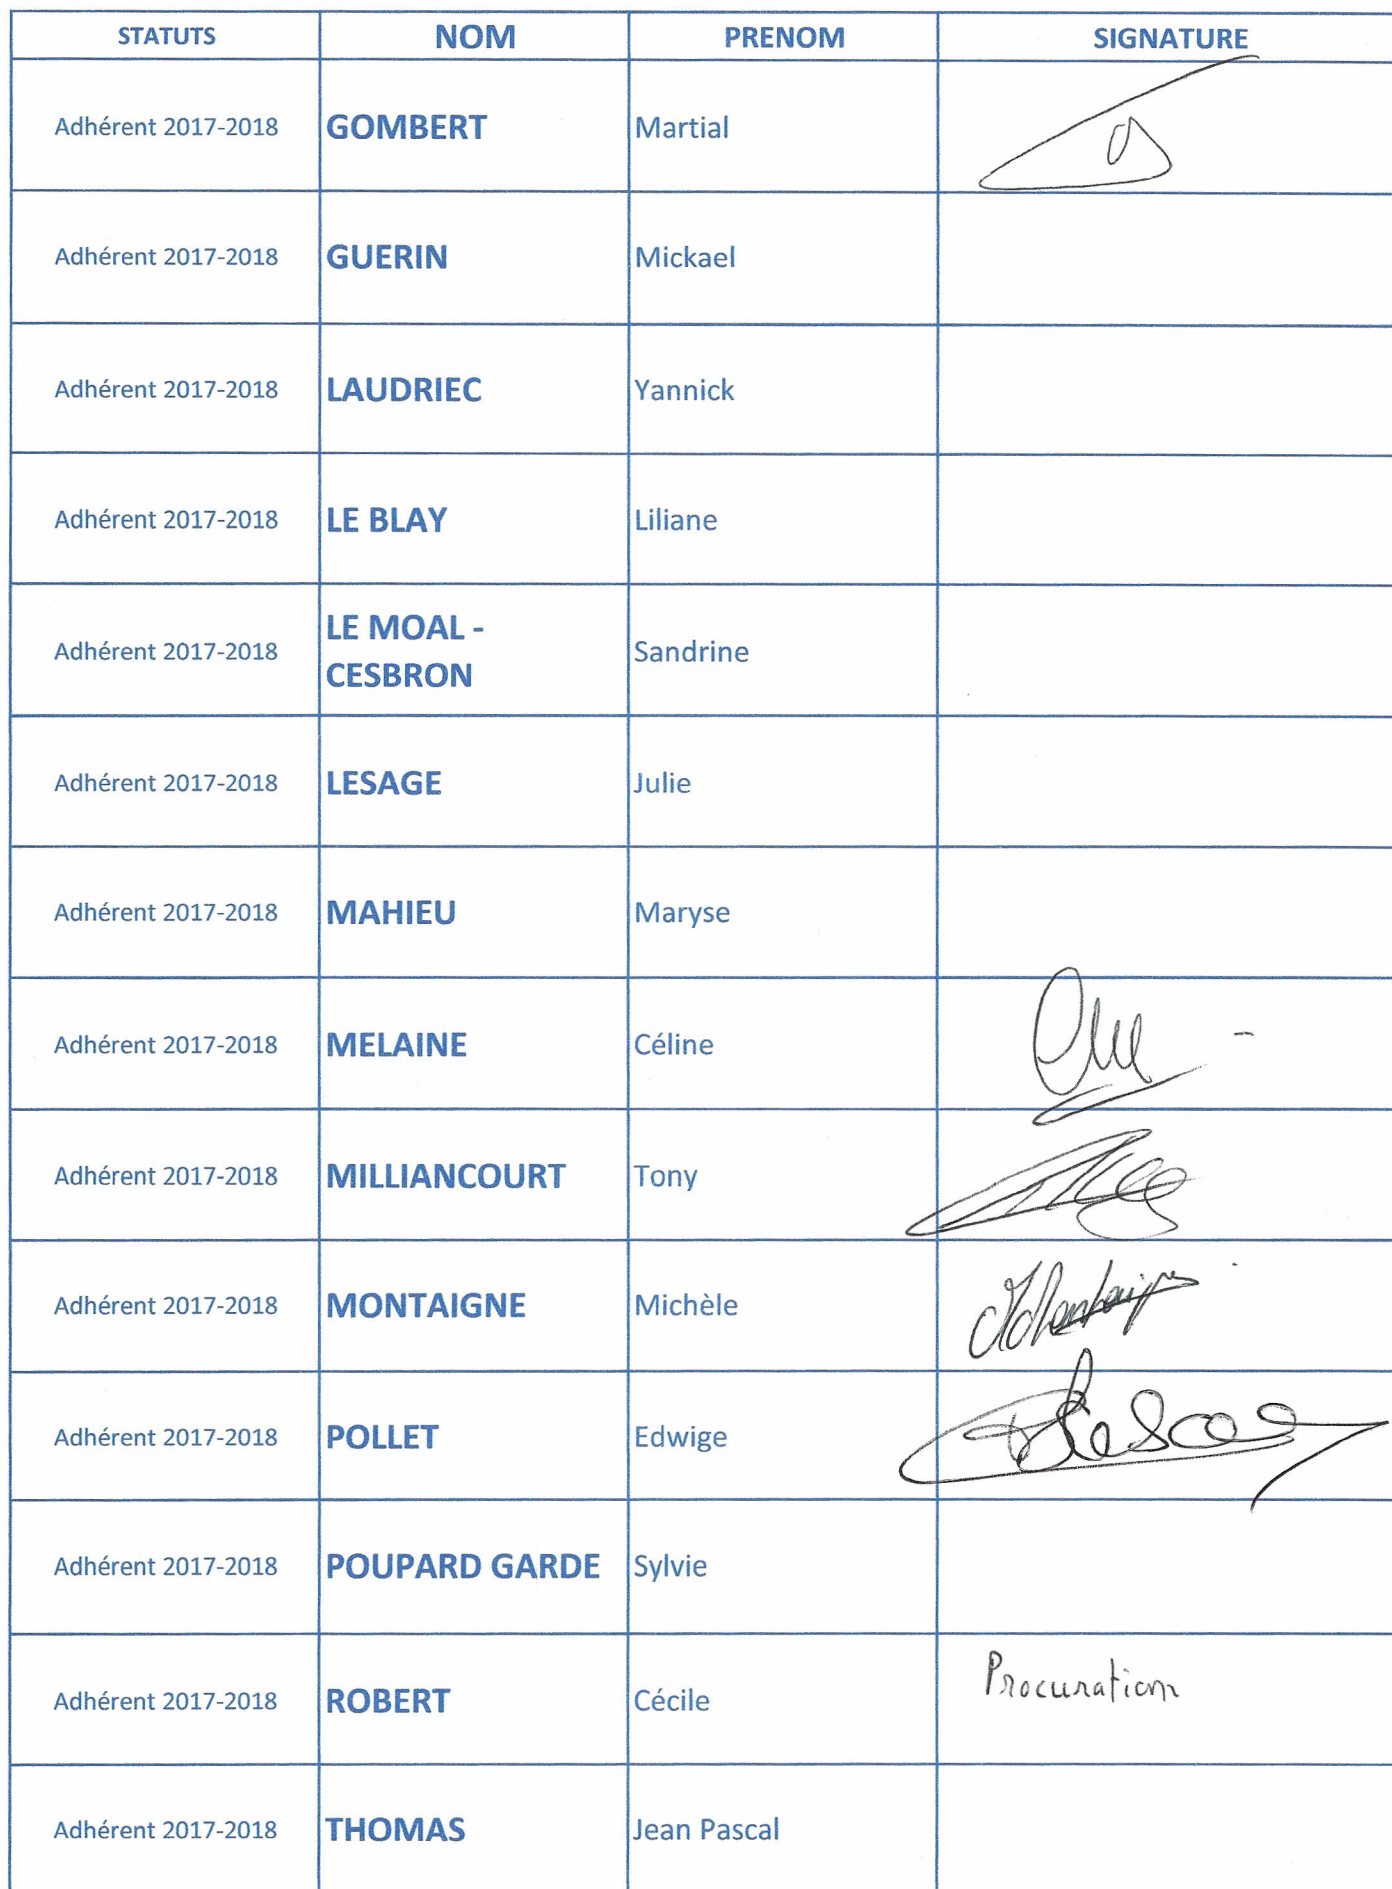 STATUTS NOM PRENOM SIGNATURE
Adhérent 2017-2018 GOMBERT Martial
Adhérent 2017-2018 GUERIN Mickael
Adhérent 2017-2018 LAUDRIEC Yannick
Adhérent 2017-2018 LE BLAY Liliane
Adhérent 2017-2018 LE MOAL -
CESBRON Sandrine
Adhérent 2017-2018 LESAGE Julie
Adhérent 2017-2018 MAHIEU Maryse
Adhérent 2017-2018 MELAINE Céline
Adhérent 2017-2018 MILLIANCOURT Tony
Adhérent 2017-2018 MONTAIGNE Michèle
Adhérent 2017-2018 POLLET Edwige
Adhérent 2017-2018 POUPARD GARDE Sylvie
Adhérent 2017-2018 ROBERT Cécile Procuration
Adhérent 2017-2018 THOMAS Jean Pascal